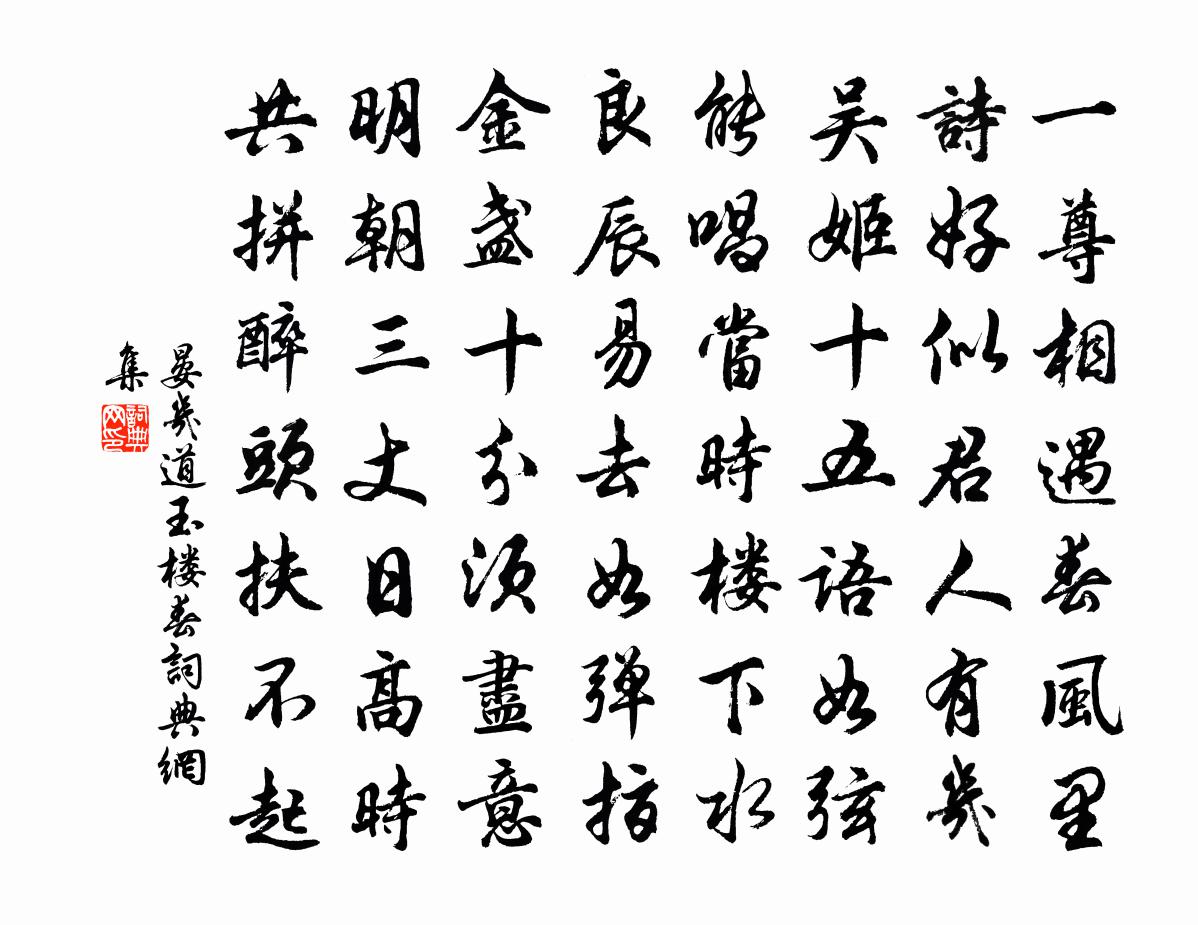 一尊相遇春風里
詩好似君人有幾
吴姬十五語如弦
能唱當時楼下水
良辰易去如弹指
金盏十分須盡意
明朝三丈日高時
共拼醉頭扶不起
晏幾道玉楼春詞典網
集
詞典
网印